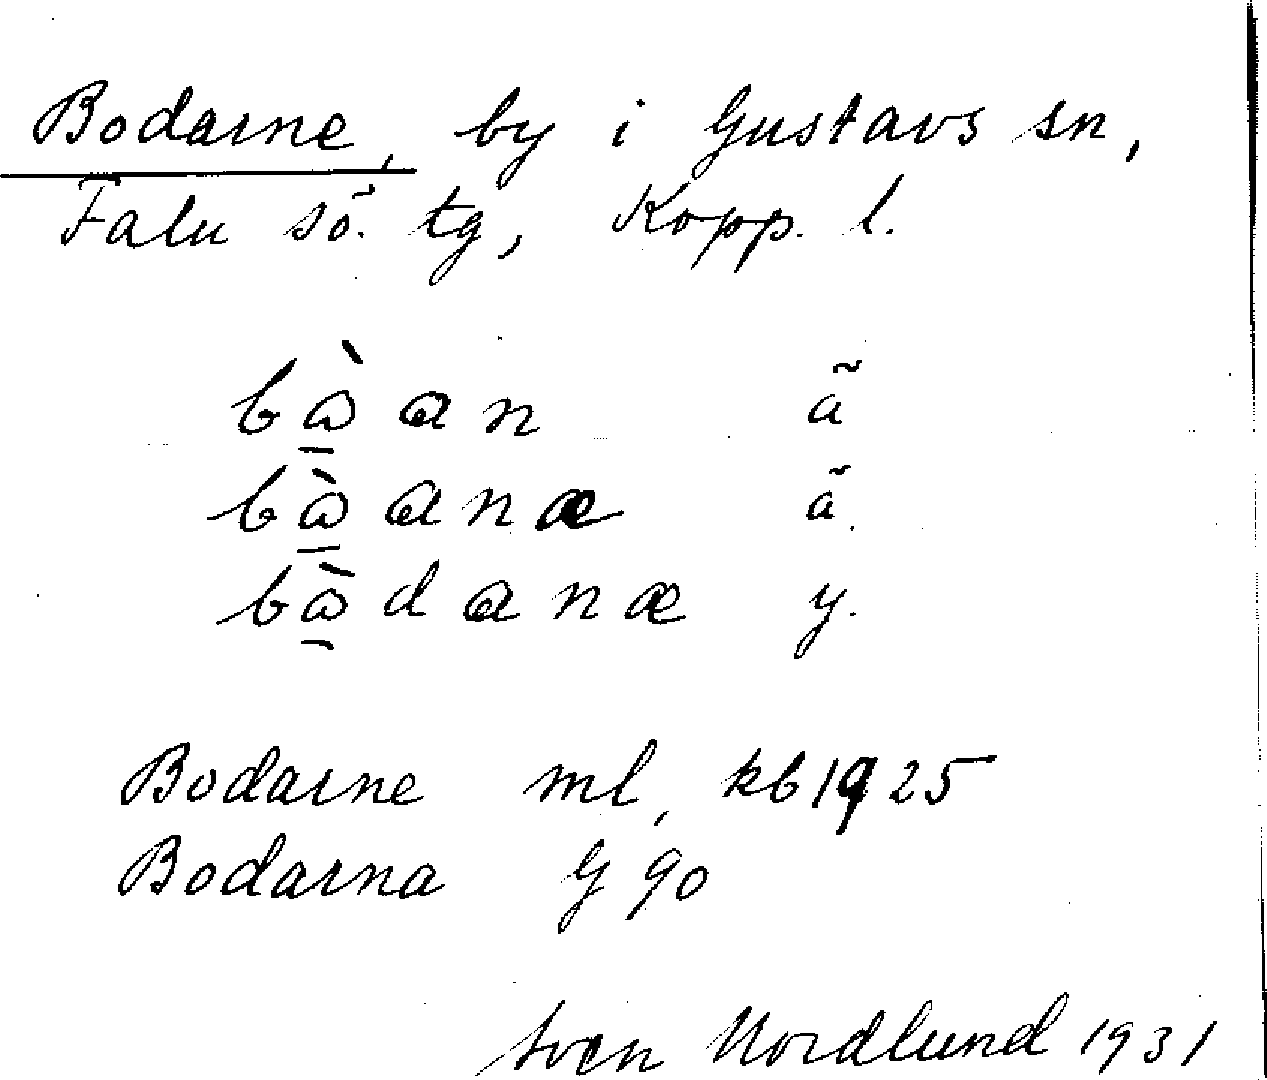 Bodarne, by i Gustavs sn,
Falu sö. tg, Kopp. l.
bɷ̠̀ an ã
bɷ̠̀ anæ ã.
bɷ̠̀ danæ y.
Bodarne ml, kb 1925
Bodarna G 90
Sven Nordlund 1931